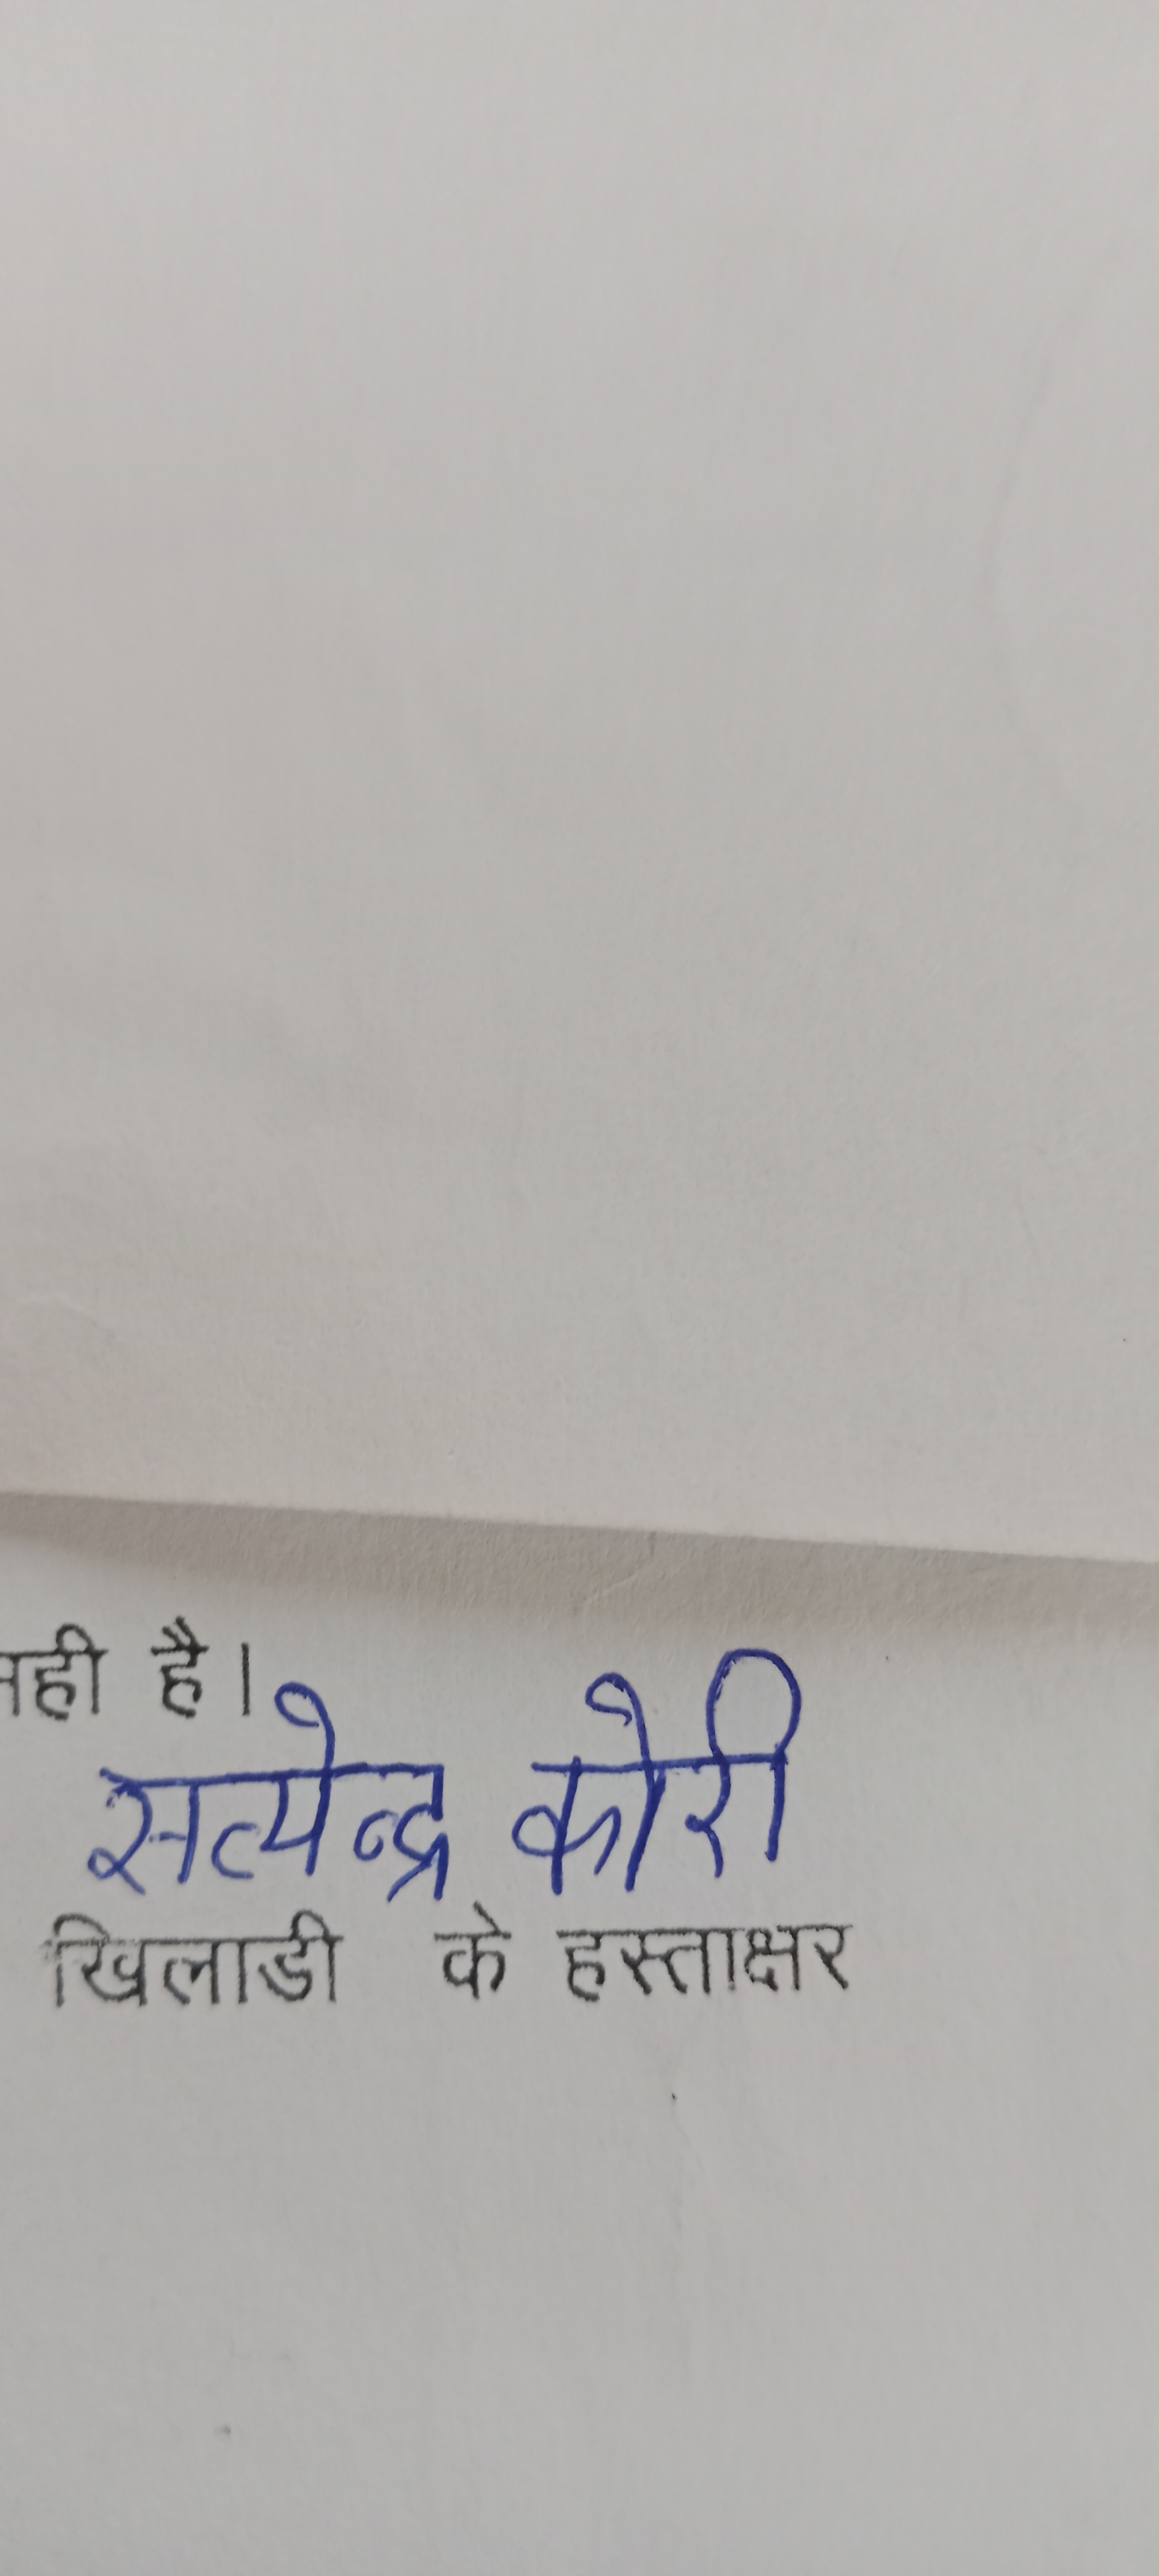 नही है।
सत्येन्द्र कोरी
खिलाडी के हस्ताक्षर